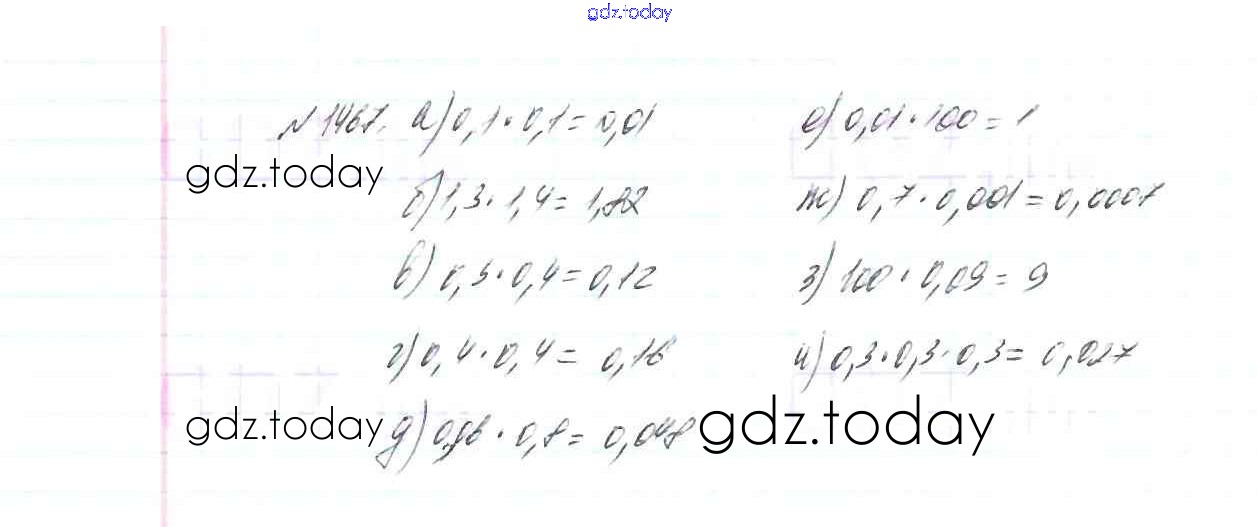 gdz.today
№ 1467. а) 0,1 · 0,1 = 0,01
б) 1,3 · 1,4 = 1,82
gdz.today
в) 0,3 · 0,4 = 0,12
г) 0,4 · 0,4 = 0,16
д) 0,06 · 0,8 = 0,048
gdz.today
е) 0,01 · 100 = 1
ж) 0,7 · 0,001 = 0,0007
з) 100 · 0,09 = 9
и) 0,3 · 0,3 · 0,3 = 0,027
gdz.today